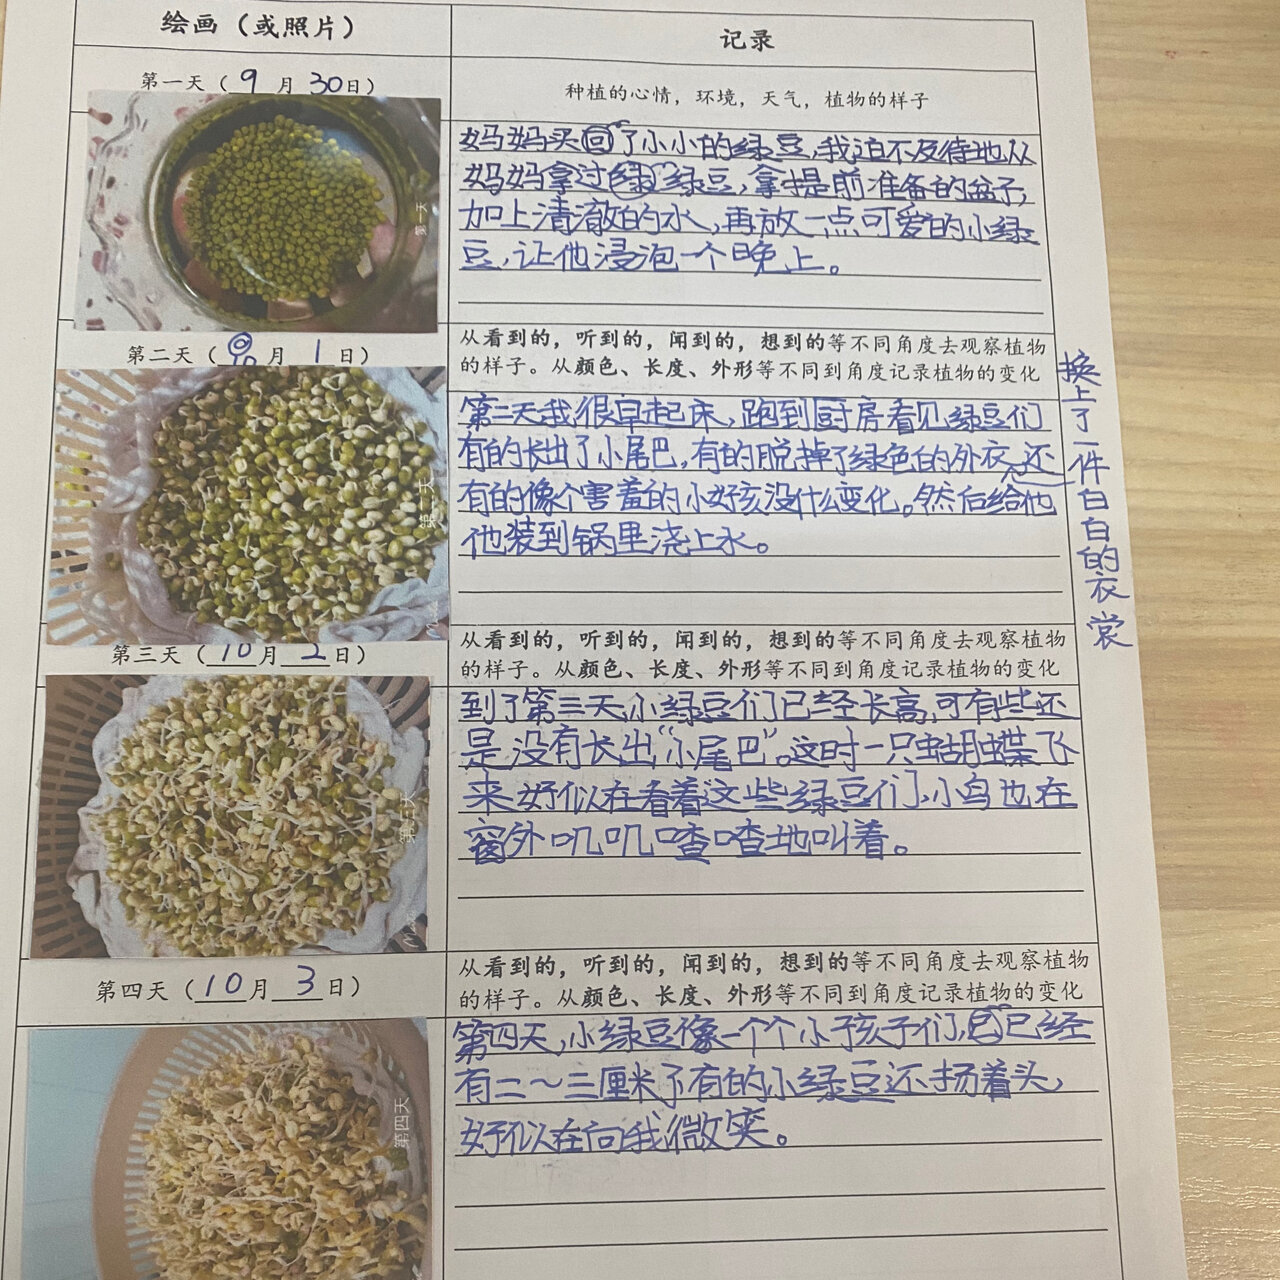 绘画（或照片）
记录
第一天（9月30日）
种植的心情，环境，天气，植物的样子
第一天
妈妈买回了小小的绿豆，我迫不及待地从
妈妈拿过绿豆，拿提前准备的盆子，
加上清澈的水，再放一点可爱的小绿
豆，让他浸泡一个晚上。
第二天（10月1日）
从看到的，听到的，闻到的，想到的等不同角度去观察植物
的样子。从颜色、长度、外形等不同到角度记录植物的变化
第二天
第二天我很早起床，跑到厨房看见绿豆们
有的长出了小尾巴，有的脱掉了绿色的外衣，还
有的像个害羞的小孩没什么变化。然后给他
他装到锅里浇上水。
换上了一件白白的衣裳
第三天（10月2日）
从看到的，听到的，闻到的，想到的等不同角度去观察植物
的样子。从颜色、长度、外形等不同到角度记录植物的变化
第三天
到了第三天，小绿豆们已经长高，可有些还
是没有长出“小尾巴”。这时一只蝴蝶飞
来好似在看着这些绿豆们，小鸟也在
窗外叽叽喳喳地叫着。
第四天（10月3日）
从看到的，听到的，闻到的，想到的等不同角度去观察植物
的样子。从颜色、长度、外形等不同到角度记录植物的变化
第四天
第四天，小绿豆像一个个小孩子们，已经
有二～三厘米了有的小绿豆还扬着头，
好似在向我微笑。